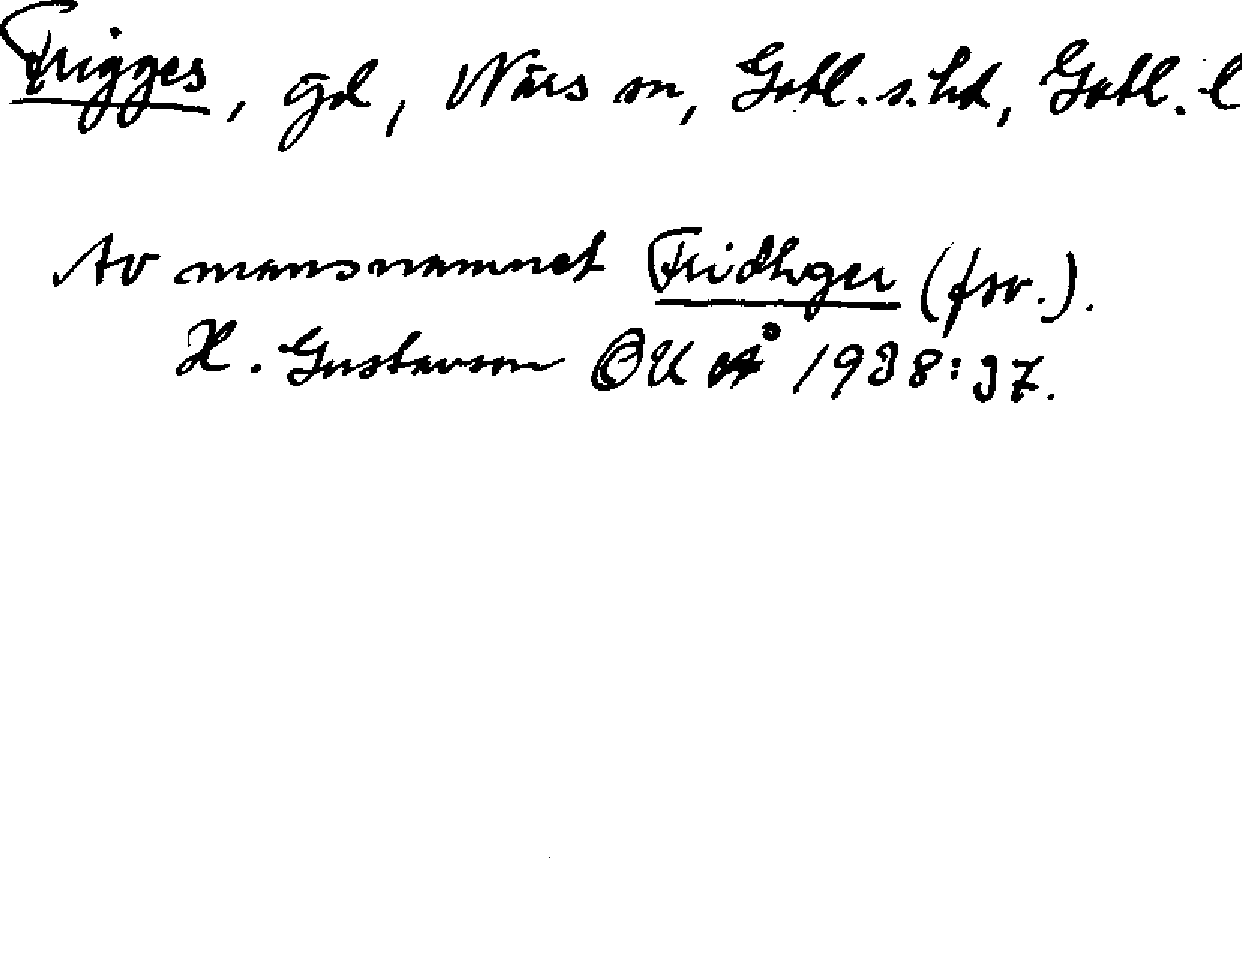 Frigges, gd, När sn, Gotl. s. hd, Gotl. l
Av mansnamnet Fridhger (fsv.).
H. Gustavson OUÅ 1938:37.